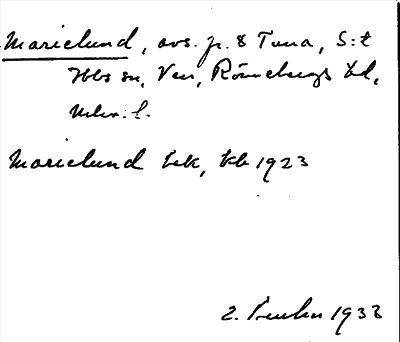 Marielund, avs. fr. 8 Tuna, S:t
Ibbs sn, Ven, Rönnebergs hd,
Mlm. l.
Marielund hek, kb 1923
2. 1933